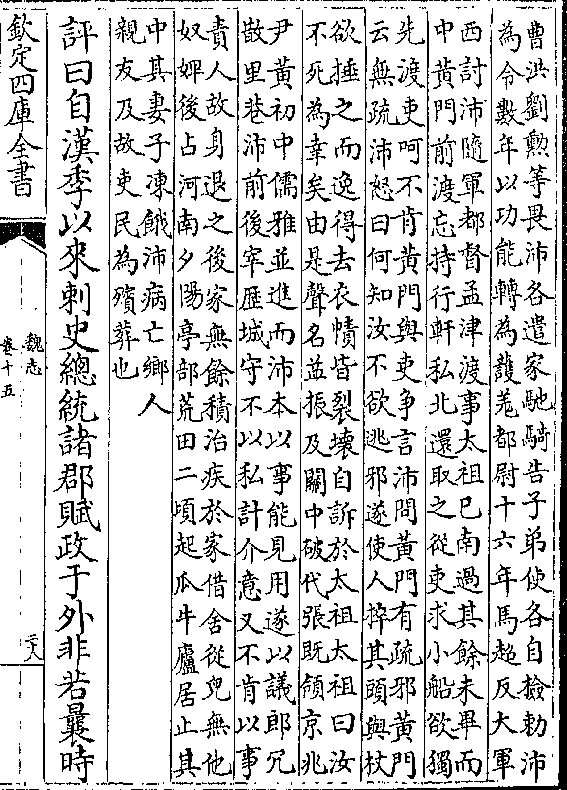 曹洪劉勲等畏沛各遣家馳騎告子弟使各自檢勅沛
為令數年以功能轉為護羌都尉十六年馬超反大軍
西討沛隨軍都督孟津渡事太祖已南過其餘未畢而
中黄門前渡忘持行軒私北還取之從吏求小船欲獨
先渡吏呵不肯黄門與吏争言沛問黄門有疏邪黄門
云無疏沛怒曰何知汝不欲逃邪遂使人捽其頭與杖
欲捶之而逸得去衣幘皆裂壞自訴於太祖太祖曰汝
不死為幸矣由是聲名益振及關中破代張既領京兆
尹黄初中儒雅並進而沛本以事能見用遂以議郎冗
散里巷沛前後宰歴城守不以私計介意又不肯以事
貴人故身退之後家無餘積治疾於家借舍從兒無他
奴婢後占河南夕陽亭部荒田二頃起瓜牛廬居止其
中其妻子凍餓沛病亡鄉人
親友及故吏民為殯葬也
評曰自漢季以來刺史總統諸郡賦政于外非若曩時
欽定四庫全書
魏志
卷十五